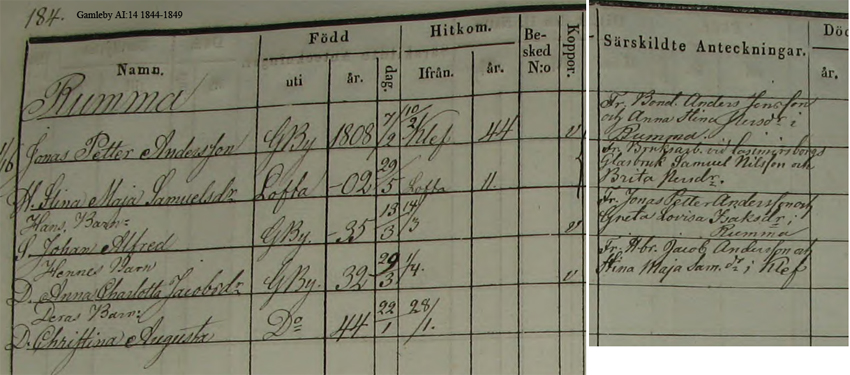 184.
Gamleby AI:14 1844-1849
Namn.
Född
uti
år.
dag.
Hitkom.
Ifrån.
år.
Be-
sked
N:o
Koppor.
Särskildte Anteckningar.
Död
år.
Rumma
1/16 Jonas Petter Andersson GBy 1808 7/2 Klef 44 v
H. Stina Maja Samuelsdr Lofta -02 29/5 Lofta 11.
Hans Barn
S. Johan Alfred GBy. -35 13/3 14/3 v
Hennes Barn
D. Anna Charlotta Jacobsdr GBy. 32 29/3 1/4. v
Deras Barn
D. Christina Augusta Do 44 22/1 28/1.
Fr. Bond. Anders Jonsson
och Anna Stina Persdr i
Rumma.
Fr. Bruksarb. vid Casimirsborgs
Glasbruk Samuel Nilsson och
Brita Persdr.
Fr. Jonas Petter Andersson och
Greta Lovisa Isaksdr i
Rumma
Fr. Hbr. Jacob Andersson och
Stina Maja Sam.dr i Klef